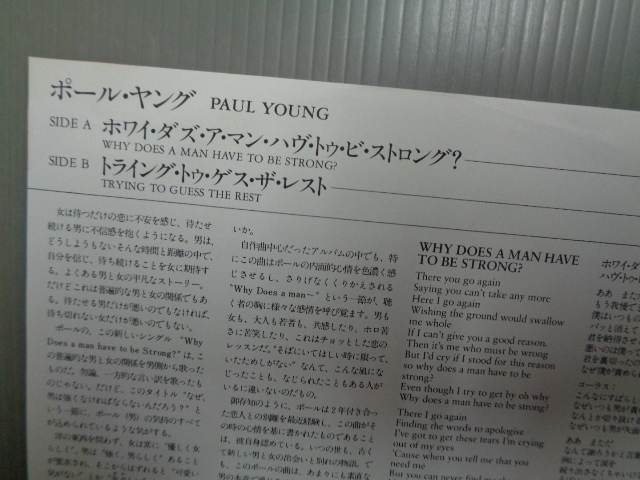 ポール・ヤング PAUL YOUNG
SIDE A ホワイ・ダズ・ア・マン・ハヴ・トゥ・ビ・ストロング?
WHY DOES A MAN HAVE TO BE STRONG?
SIDE B トライング・トゥ・ゲス・ザ・レスト
TRYING TO GUESS THE REST
女は待つだけの恋に不安を感じ、待たせ
続ける男に不信感を抱くようになる。男は、
どうしようもないそんな時間と距離の中で、
自分を信じ、待ち続けることを女に期待す
る。よくある男と女の平凡なストーリー。
だけどこれは普遍的な男と女の関係でもあ
る。待たせる男だけが悪いのでもなければ、
待ち切れない女だけが悪いのでもない。
ポールの、この新しいシングル "Why
Does a man have to be Strong?" は、こ
の普遍的な男と女の関係を男側から歌った
ものだ。勿論、一方的な言い訳を歌ったも
のじゃない。だけど、このタイトル "なぜ、
男は強くなければならないんだろう?" と
いう一節に、ポール(男)の気持のすべて
が込められているような気がする。
洋の東西を問わず、女は常に "優しく女
いか。
自作曲中心だったアルバムの中でも、特
にこの曲はポールの内面的心情を色濃く感
じさせるし、さりげなくくりかえされる
"Why Does a man〜" という一節が、聴
く者の胸に様々な感情を呼び覚ます。男も
女も、大人も若者も、共感したり、ホロ苦
さに苦笑したり、これはチョッとした恋の
レッスンだ。"そばにいてほしい時に限って、
いたためしがない" なんて、こんな風にな
じったことも、なじられたこともある人が
いるに違いないのだもの。
御存知のように、ポールは2年付き合っ
た恋人との別離を最近経験し、この曲がそ
の時の心情を基に書かれたものであること
は、彼自身認めている。いつの世も、古く
て新しい男と女の出会いと別れの物語。で
も、このポールの曲は、あまりにも素直な
WHY DOES A MAN HAVE
TO BE STRONG?
There you go again
Saying you can't take any more
Here I go again
Wishing the ground would swallow
me whole
If I can't give you a good reason.
Then it's me who must be wrong
But I'd cry if I stood for this reason
so why does a man have to be
strong?
Even though I try to get by oh why
Why does a man have to be strong?
There I go again
Finding the words to apologise
I've got to get these tears I'm crying
out of my eyes
'Cause when you tell me that you
need me